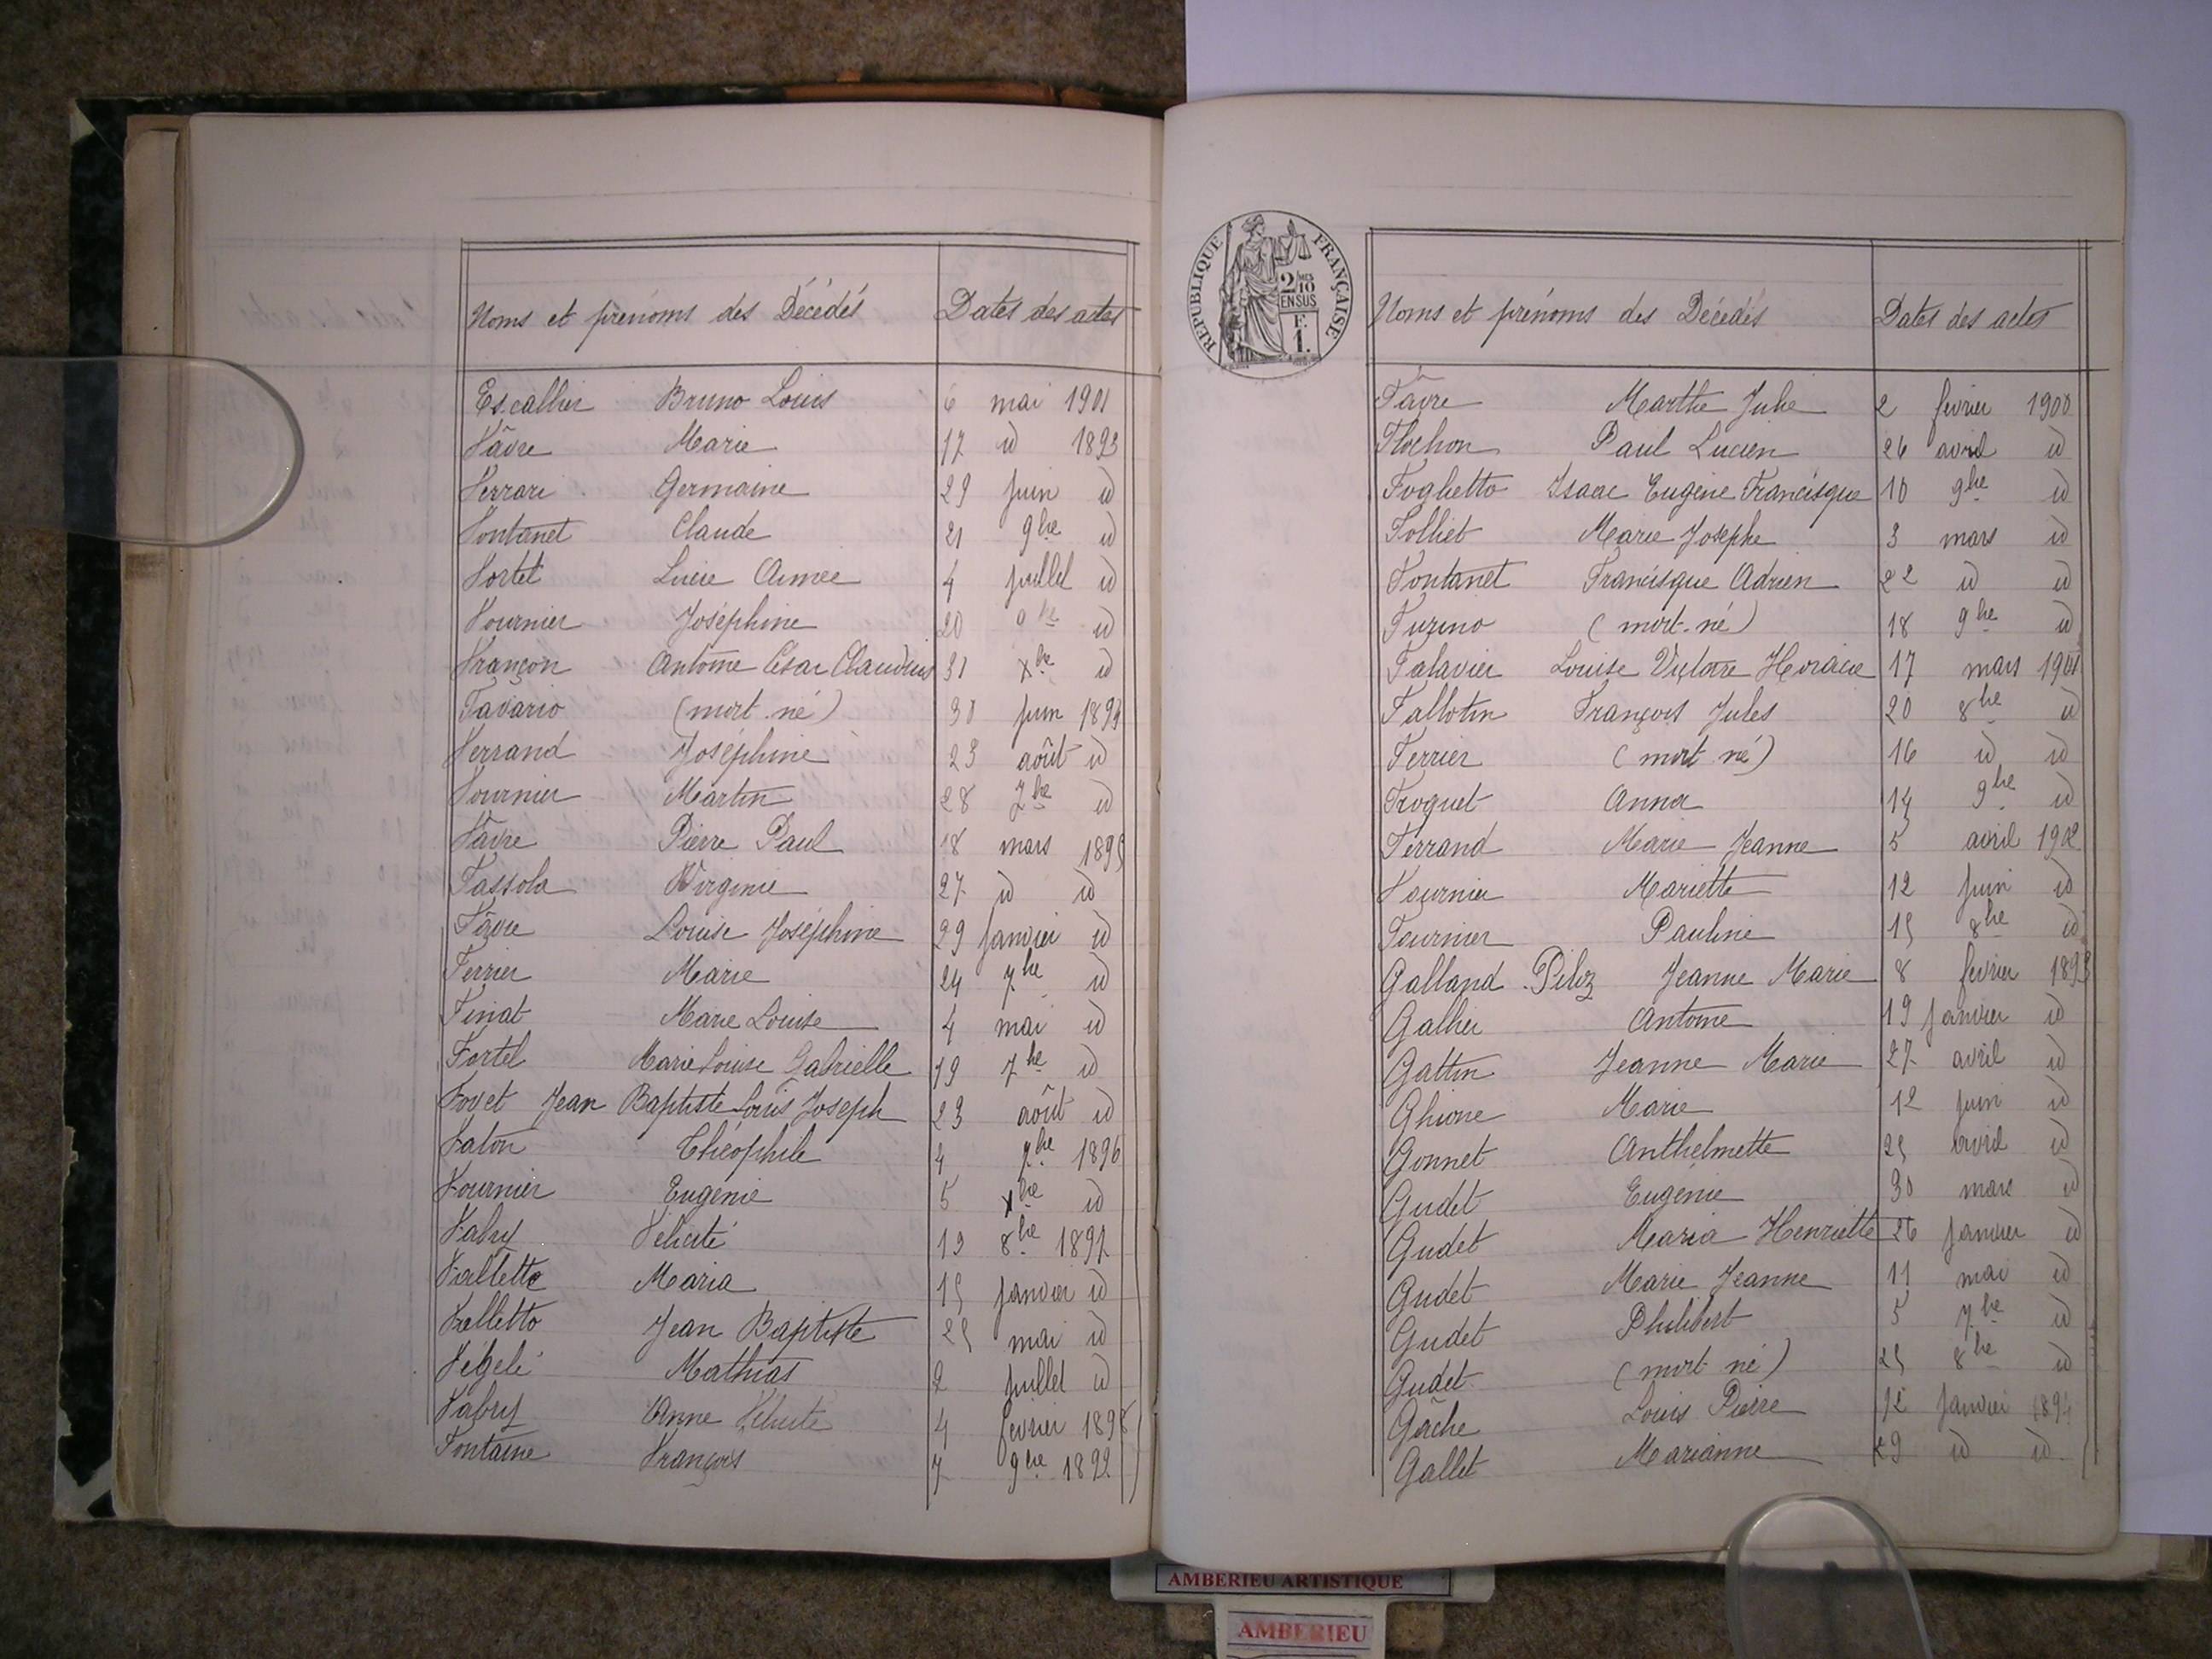 Noms et prénoms des Décédés Dates des actes
Escallier Bruno Louis 6 mai 1901
Fâvre Marie 17 id 1893
Ferrari Germaine 29 juin id
Fontanet Claude 21 9bre id
Fortel Lucie Aimée 4 juillet id
Fournier Joséphine 20 id
Françon Antoine César Claudius 31 xbre id
Favario (mort-né) 30 juin 1894
Ferrand Joséphine 23 août id
Fournier Martin 28 7bre id
Fâvre Pierre Paul 18 mars 1895
Fassola Virginie 27 id id
Fâvre Louise Joséphine 29 janvier id
Ferrier Marie 24 7bre id
Finat Marie Louise 4 mai id
Fortel Marie Louise Gabrielle 19 7bre id
Fovet Jean Baptiste Louis Joseph 23 août id
Faton Théophile 4 7bre 1896
Fournier Eugénie 5 xbre id
Fabry Félicité 19 8bre 1897
Falletto Maria 15 janvier id
Falletto Jean Baptiste 25 mai id
Fégelé Mathias 2 juillet id
Fabry Anne Félicité 4 février 1898
Fontaine François 7 9bre 1899
REPUBLIQUE FRANÇAISE
2/10 MES
EN SUS
F.
1.
Noms et prénoms des Décédés Dates des actes
Fâvre Marthe Julie 2 février 1900
Flochon Paul Lucien 26 avril id
Foghetto Isaac Eugène Francisque 10 9bre id
Folliet Marie Josephe 3 mars id
Fontanet Francisque Adrien 22 id id
Furino (mort-né) 18 9bre id
Falavier Louise Victoire Horacie 17 mars 1901
Fallotin François Jules 20 8bre id
Ferrier (mort né) 16 id id
Froquet Anna 14 9bre id
Ferrand Marie Jeanne 5 avril 1902
Fournier Mariette 12 juin id
Fournier Pauline 15 8bre id
Galland-Piloz Jeanne Marie 8 février 1893
Gallier Antoine 19 janvier id
Gattin Jeanne Marie 27 avril id
Ghione Marie 12 juin id
Gonnet Anthelmette 25 avril id
Gudet Eugénie 30 mars id
Gudet Maria Henriette 26 janvier id
Gudet Marie Jeanne 11 mai id
Gudet Philibert 5 7bre id
Gudet (mort né) 25 8bre id
Gâche Louis Pierre 12 janvier 1894
Gallet Marianne 29 id id
AMBERIEU ARTISTIQUE
AMBERIEU